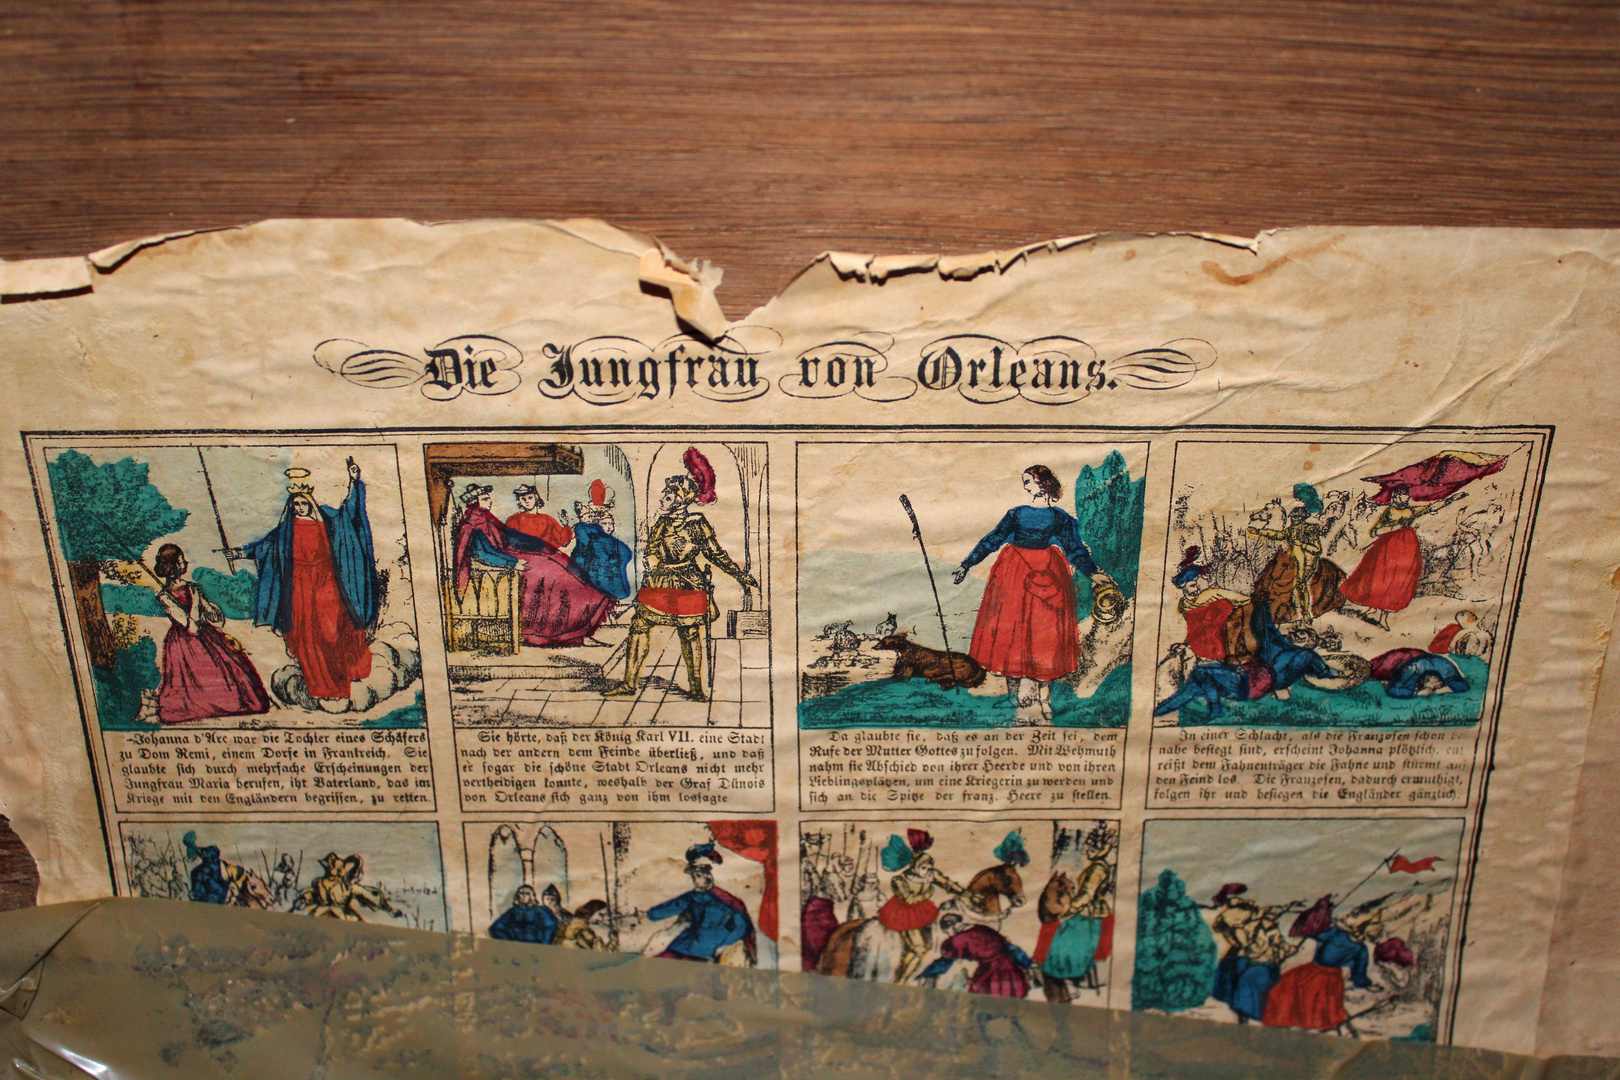 Die Jungfrau von Orleans.
Johanna d'Arc war die Tochter eines Schäfers
zu Dom Remi, einem Dorfe in Frankreich. Sie
glaubte sich durch mehrfache Erscheinungen der
Jungfrau Maria berufen, ihr Vaterland, das im
Kriege mit den Engländern begriffen, zu retten.
Sie hörte, daß der König Karl VII. eine Stadt
nach der andern dem Feinde überließ, und daß
er sogar die schöne Stadt Orleans nicht mehr
vertheidigen konnte, weshalb der Graf Dünois
von Orleans sich ganz von ihm lossagte
Da glaubte sie, daß es an der Zeit sei, dem
Rufe der Mutter Gottes zu folgen. Mit Wehmuth
nahm sie Abschied von ihrer Heerde und von ihren
Lieblingsplätzen, um eine Kriegerin zu werden und
sich an die Spitze der franz. Heere zu stellen.
In einer Schlacht, als die Franzosen schon bei-
nahe besiegt sind, erscheint Johanna plötzlich, ent
reißt dem Fahnenträger die Fahne und stürmt auf
den Feind los. Die Franzosen, dadurch ermuthigt,
folgen ihr und besiegen die Engländer gänzlich.